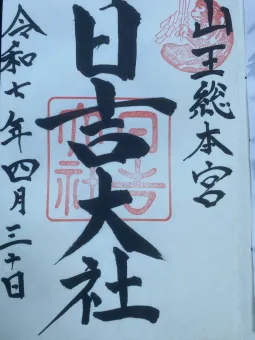 山王総本宮
日吉大社
令和七年四月三十日